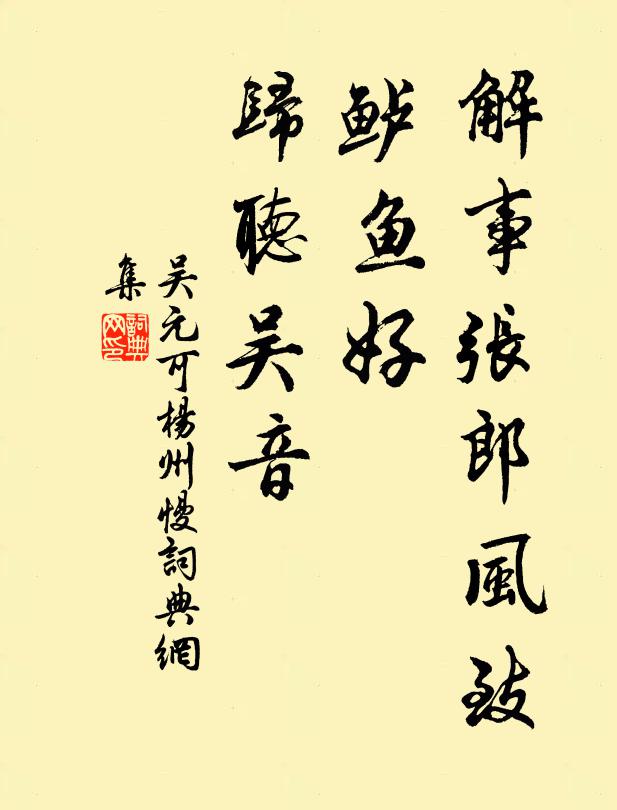 解事張郎風致
鲈鱼好
歸聽吴音
吴元可楊州慢詞典網
集
詞典網印